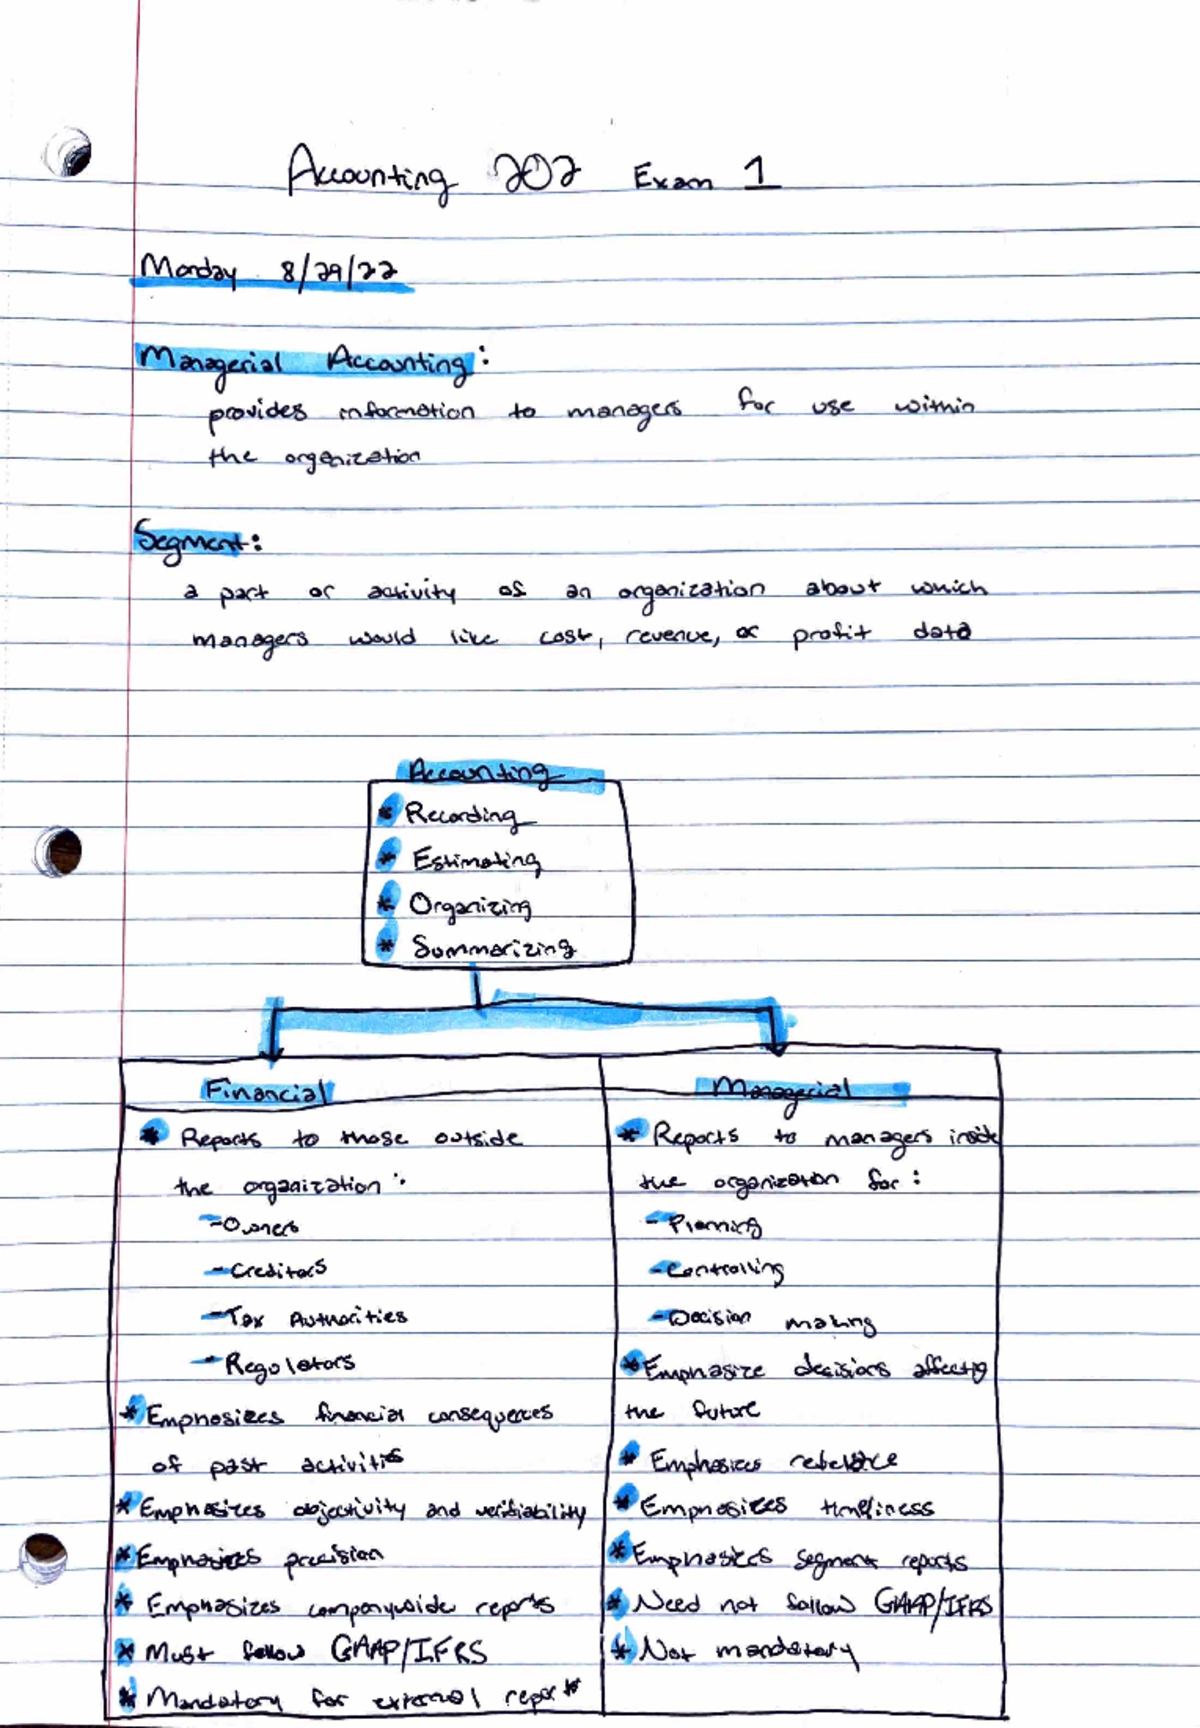 Accounting 202 Exam 1
Monday 8/29/22
Managerial Accounting:
provides information to managers for use within
the organization
Segment:
a part or activity of an organization about which
managers would like cost, revenue, or profit data
Accounting
* Recording
* Estimating
* Organizing
* Summarizing
Financial
* Reports to those outside
the organization:
- Owners
- Creditors
- Tax Authorities
- Regulators
* Emphasizes financial consequences
of past activities
* Emphasizes objectivity and verifiability
* Emphasizes precision
* Emphasizes companywide reports
* Must follow GAAP/IFRS
* Mandatory for external reports
Managerial
* Reports to managers inside
the organization for:
- Planning
- Controlling
- Decision making
* Emphasize decisions affecting
the future
* Emphasizes
* Emphasizes timeliness
* Emphasizes segment reports
* Need not follow GAAP/IFRS
* Not mandatory